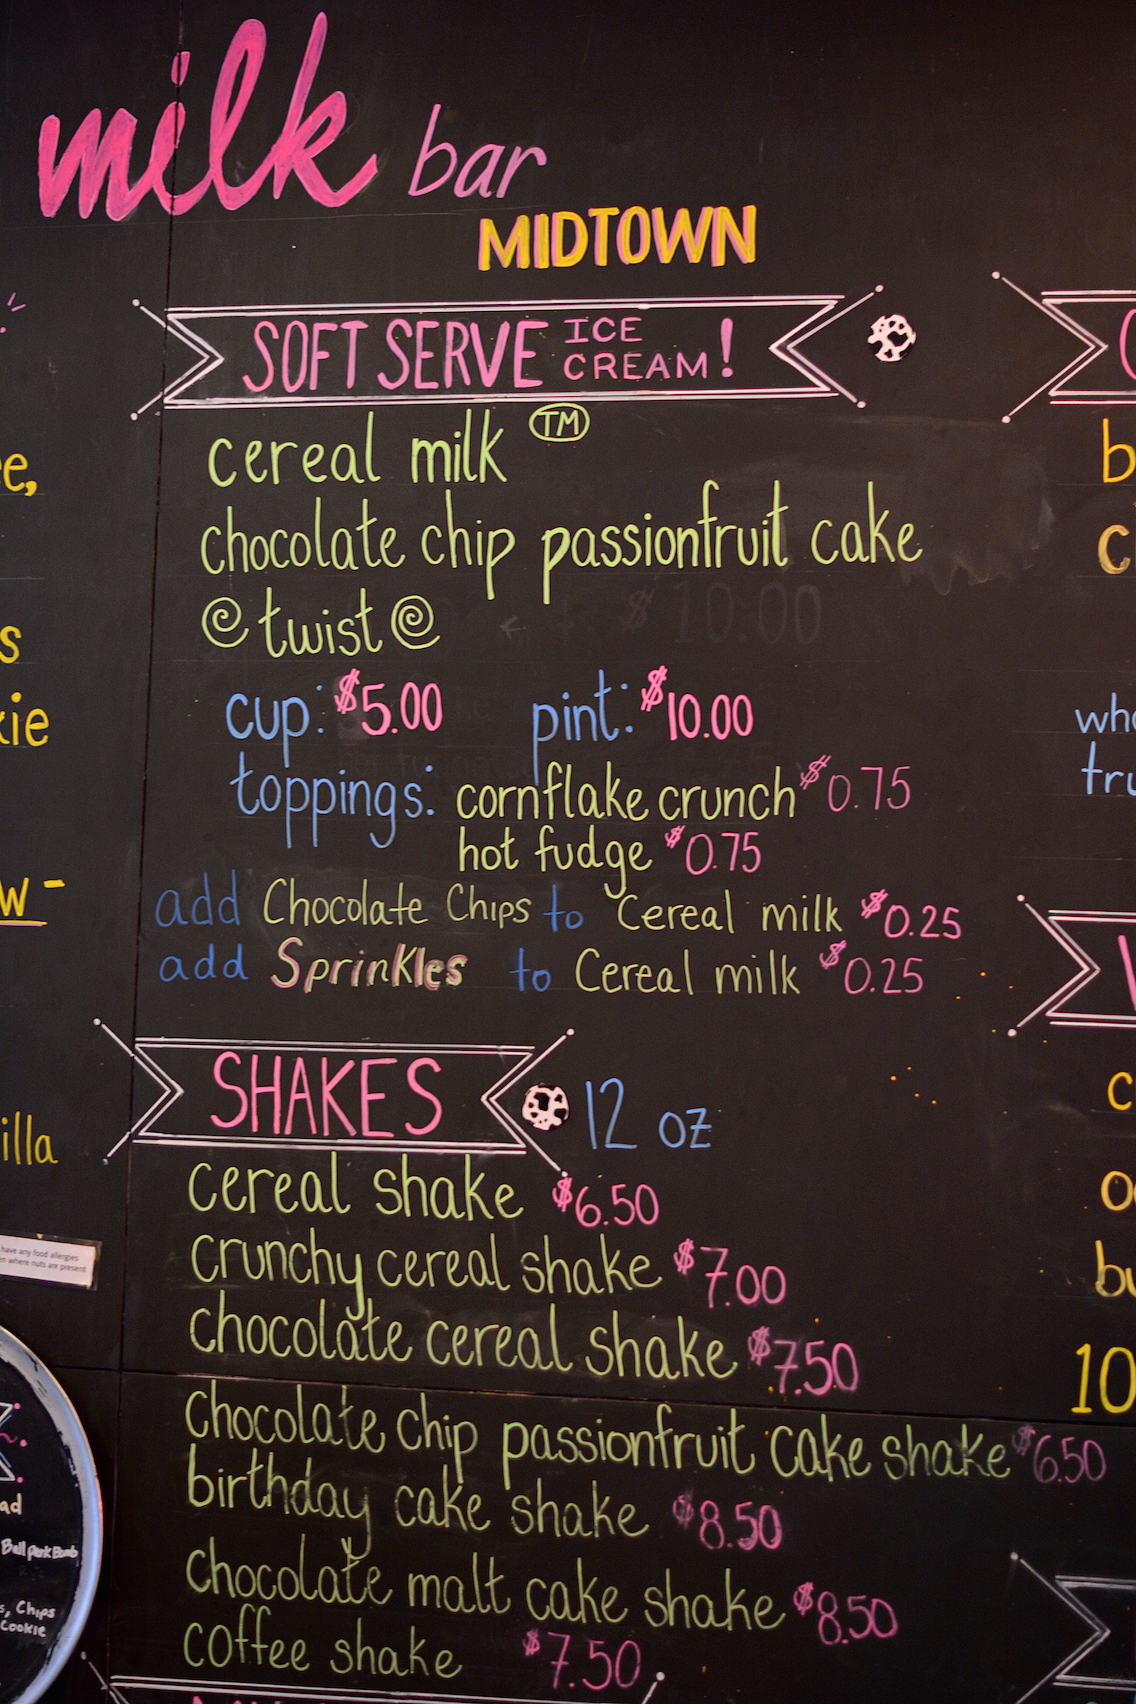 milk bar
MIDTOWN
SOFT SERVE ICE CREAM!
cereal milk TM
chocolate chip passionfruit cake
twist
cup: $5.00 pint: $10.00
toppings: cornflake crunch $0.75
hot fudge $0.75
add Chocolate Chips to Cereal milk $0.25
add Sprinkles to Cereal milk $0.25
SHAKES 12 oz
cereal shake $6.50
crunchy cereal shake $7.00
chocolate cereal shake $7.50
chocolate chip passionfruit cake shake $6.50
birthday cake shake $8.50
chocolate malt cake shake $8.50
coffee shake $7.50
e,
s
kie
w -
illa
have any food allergies
en where nuts are present
ad
Ball park Bomb
s, Chips
Cookie
b
c
who
tru
c
o
bu
10
$10.00